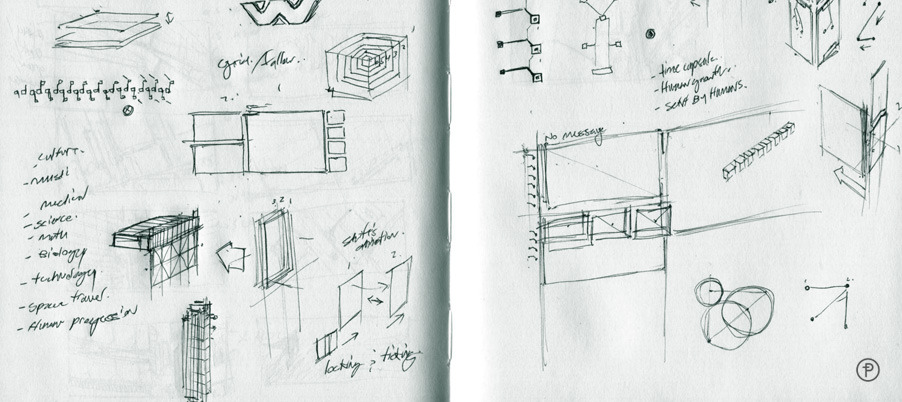 grid.
- time capsule.
- Human growth.
- Sent By Humans.
2. 1
No message
- culture.
- music
- medical
- science.
- math
- Biology
- technology.
- space travel.
- Human progression
3. 2. 1
1. 2.
locking & ticking